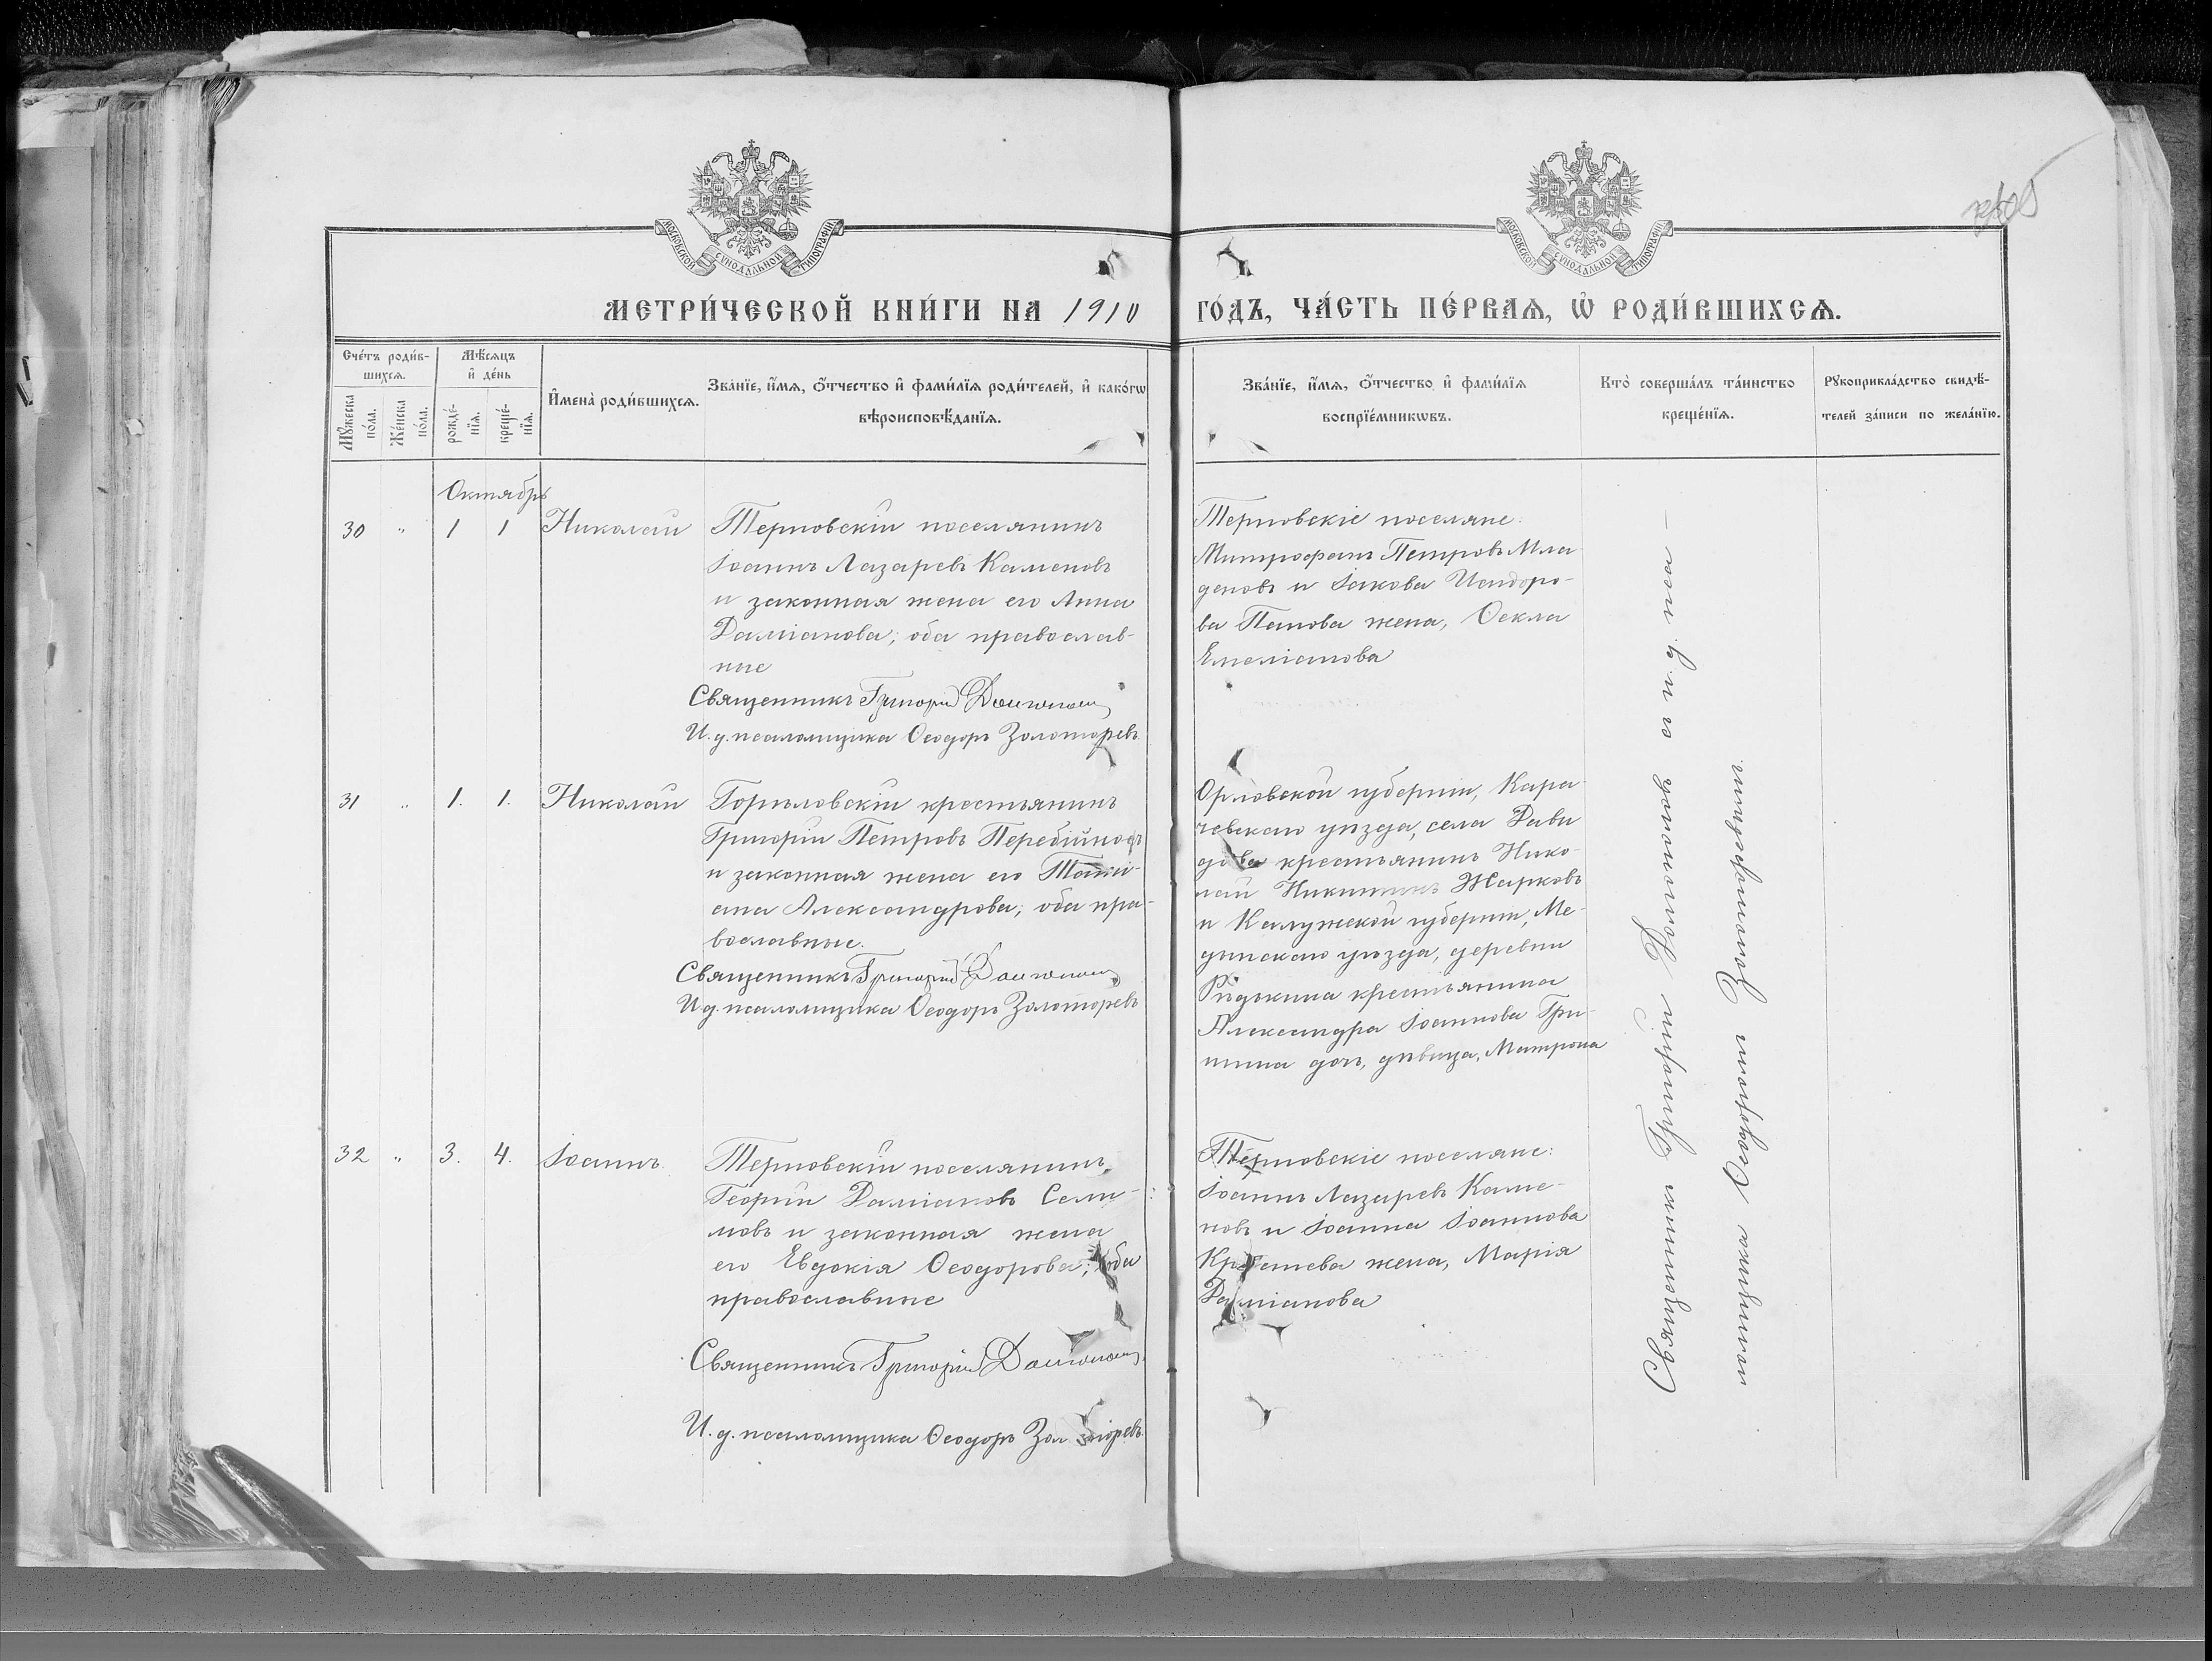 МОСКОВСКОЙ СУНОДАЛЬНОЙ ТИПОГРАФІИ
МОСКОВСКОЙ СУНОДАЛЬНОЙ ТИПОГРАФІИ
МЕТРИ́ЧЕСКОЙ КНИ́ГИ НА 1910 ГО́ДЪ, ЧА́СТЬ ПЕ́РВАѦ, Ѡ҆ РОДИ́ВШИХСѦ.
Сче́тъ роди́в-
шихсѧ.
Мꙋ́жеска
по́ла.
Же́нска
по́ла.
Мѣ́сѧцъ
и҆ де́нь
рожде́-
нїѧ.
креще́-
нїѧ.
И҆мена̀ роди́вшихсѧ.
Зва́нїе, и҆́мѧ, ѻ҆́тчество и҆ фами́лїѧ роди́телей, и҆ како́гѡ
вѣроисповѣ́данїѧ.
Зва́нїе, и҆́мѧ, ѻ҆́тчество и҆ фами́лїѧ
воспрїе́мникѡвъ.
Кто̀ соверша́лъ та́инство
креще́нїѧ.
Рꙋкоприкла́дство свидѣ́-
телей за́писи по жела́нїю.
Октябрь
30 " 1 1 Николай
Терновскій поселянинъ
Іоаннъ Лазаревъ Каменовъ
и законная жена его Анна
Даміанова; оба православ-
ные
Священникъ Григорій
И. д. псаломщика Ѳеодоръ Золоторевъ
Терновскіе поселяне:
Митрофанъ Петровъ Мла-
деновъ и Іакова Исидоро-
ва Панова жена, Ѳекла
Емеліанова
31 " 1. 1. Николай
Горѣловскій крестьянинъ
Григорій Петровъ Перебійносъ
и законная жена его Таті-
ана Александрова; оба пра-
вославные.
Священникъ Григорій
И д. псаломщика Ѳеодоръ Золоторевъ
Орловской губерніи, Кара-
чевскаго уѣзда, села Дави
дова крестьянинъ Нико-
лай Никитинъ Жарковъ
и Калужской губерніи, Ме-
дынскаго уѣзда, деревни
Рѣдькина крестьянина
Александра Іоаннова Гри-
шина дочь, дѣвица, Матрона
32 " 3. 4. Іоаннъ.
Терновскій поселянинъ,
Георгій Даміановъ Сели-
мовъ и законная жена
его Евдокія Ѳеодорова; оба
православные
Священникъ Григорій
И. д. псаломщика Ѳеодоръ Золоторевъ
Терновскіе поселяне:
Іоаннъ Лазаревъ Каме-
новъ и Іоанна Іоаннова
жена, Марія
Даміанова
Священникъ Григорій съ и. д. пса-
ломщика Ѳеодоромъ Золоторевымъ.